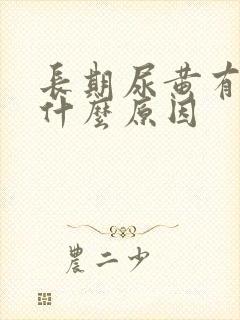 長期尿黃有
什麼原因
農二少